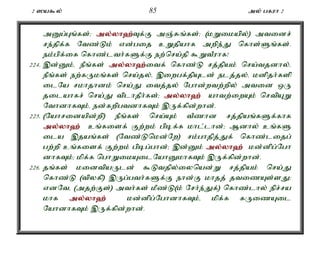 2 ஸயகூல் 85 அல் பகரா 2
அனுப்புங்கள்; அல்லாஹ்வுக்கு அஞ்சுங்கள்; (மறுமையில்) அவனைச்
சந்திக்க வேண்டும் என்பதை உறுதியாக அறிந்து கொள்ளுங்கள்.
நம்பிக்கை கொண்டவர்களுக்கு நற்செய்தி கூறுவீராக!
224. இன்னும், நீங்கள் அல்லாஹ்வைக் கொண்டு சத்தியம் செய்வதனால்,
நீங்கள் நற்கருமங்கள் செய்தல், இறைபக்தியுடன் நடத்தல், மனிதர்களி
டையே சமாதானம் செய்து வைத்தல் போன்றவற்றில் அவனை ஒரு
தடையாகச் செய்து விடாதீர்கள்; அல்லாஹ் யாவற்றையும் செவியுறு
வோனாகவும், நன்கறிபவனாகவும் இருக்கின்றான்.
225. (யோசனையின்றி) நீங்கள் செய்யும் வீணான சத்தியங்களுக்காக
அல்லாஹ் உங்களைக் குற்றம் பிடிக்க மாட்டான்; ஆனால் உங்களு
டைய இதயங்கள் (வேண்டுமென்றே) சம்பாதித்துக் கொண்டதைப்
பற்றி உங்களைக் குற்றம் பிடிப்பான்; இன்னும் அல்லாஹ் மன்னிப்போ
னாகவும்; மிக்க பொறுமையுடையோனுமாகவும் இருக்கின்றான்.
226. தங்கள் மனைவியருடன் கூடுவதில்லையென்று சத்தியம் செய்து
கொண்டு (விலகி) இருப்பவர்களுக்கு நான்கு மாதத் தவணையுள்ளது;
எனவே, (அதற்குள்) அவர்கள் மீண்டு(ம் சேர்ந்துக்) கொண்டால் நிச்சய
மாக அல்லாஹ் மன்னிப்போனாகவும், மிக்க கருணையுடை
யோனாகவும் இருக்கின்றான்.